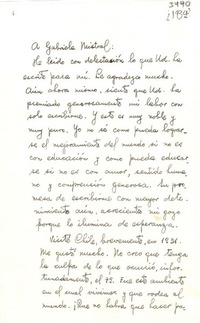 3990
¿193?
A Gabriela Mistral:
He leído con delectación lo que Ud. ha
escrito para mí. Le agradezco mucho.
Aún ahora mismo, siento que Ud. ha
premiado generosamente mi labor con
solo escribirme. Y esto es muy noble y
muy puro. Yo no sé como pueda logar-
se el mejoramiento del mundo si no es
con educación y como pueda educar-
se si no es con amor, sentido huma
no y comprensión generosa. Su pro-
mesa de escribirme con mayor dete-
nimiento aún, acrecienta mi gozo
porque lo ilumina de esperanza.
Visité Chile, brevemente, en 1931.
Me gustó mucho. No creo que tenga
la culpa de lo que ocurrió, infor-
tunadamente, el 73. Fue este ambiente
en el cual vivimos y que rodea al
mundo. ¡Que no habrá que hacer pa